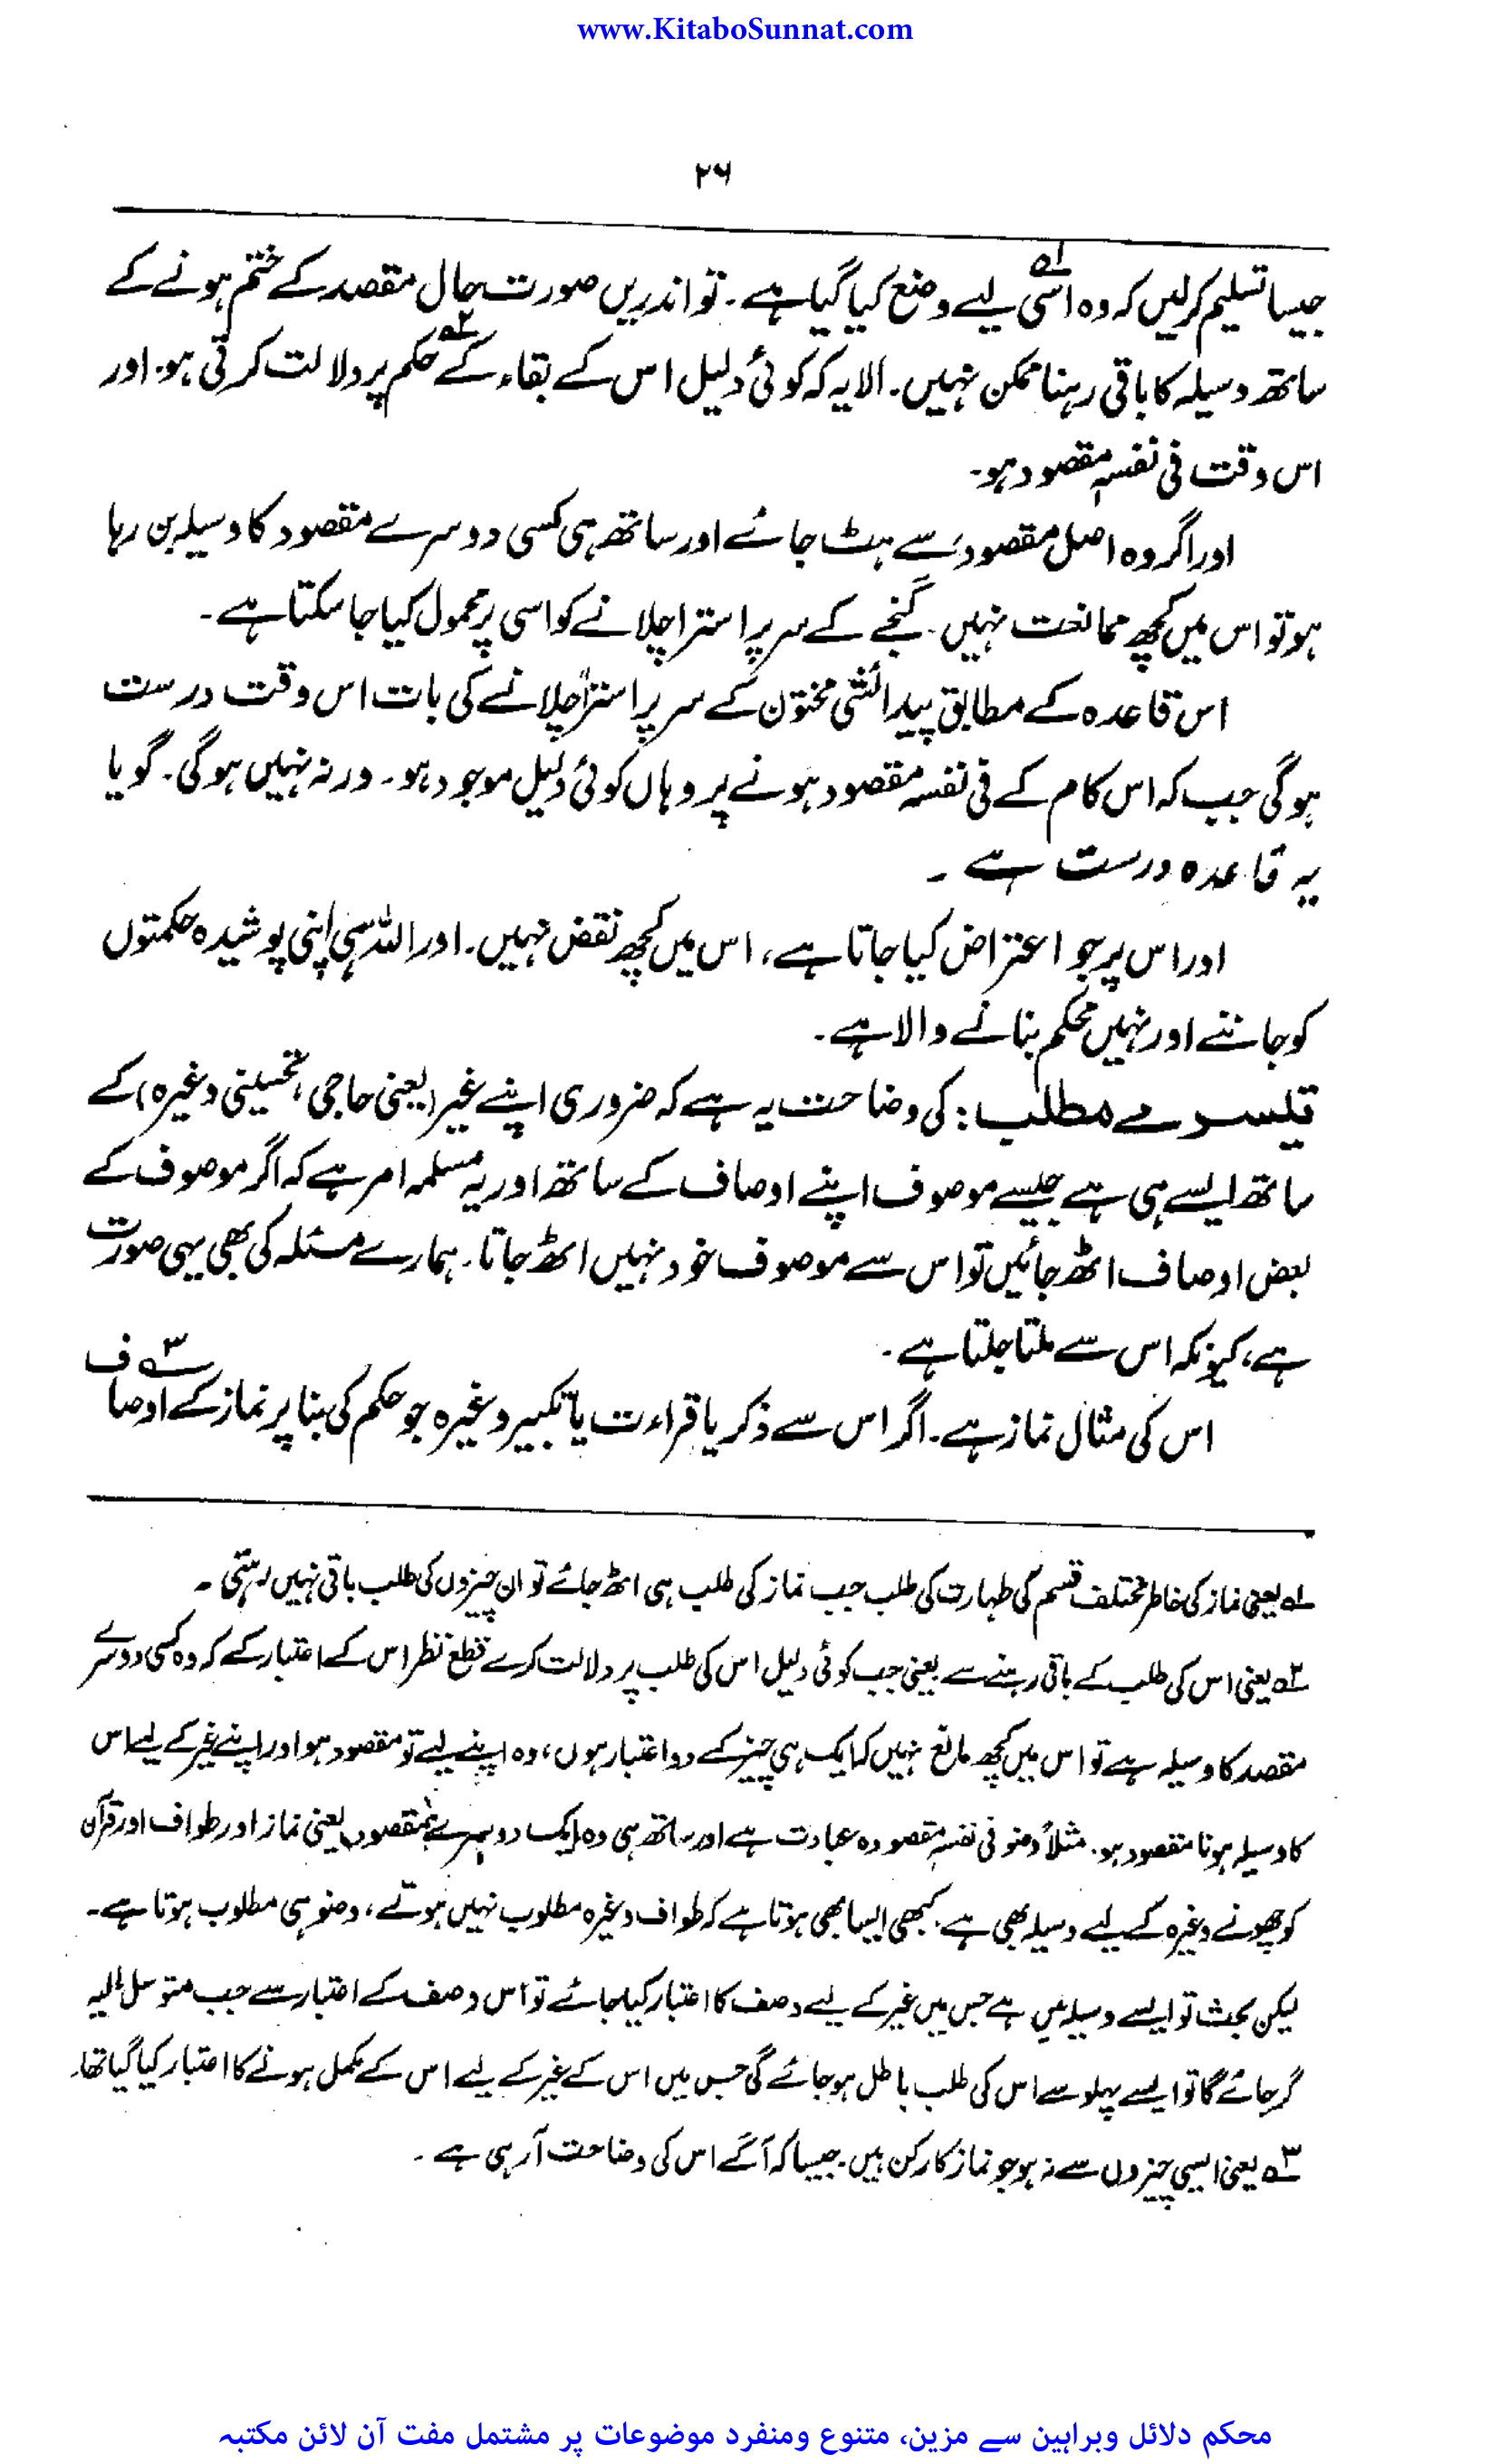 www.KitaboSunnat.com
۲۶
جیسا تسلیم کر لیں کہ وہ اسی۱ لیے وضع کیا گیا ہے۔ تو اندریں صورت حال مقصد کے ختم ہونے کے
ساتھ وسیلہ کا باقی رہنا ممکن نہیں۔ الا یہ کہ کوئی دلیل اس کے بقاء کے۲ حکم پر دلالت کرتی ہو۔ اور
اس وقت فی نفسہٖ مقصود ہو۔
اور اگر وہ اصل مقصود سے ہٹ جائے اور ساتھ ہی کسی دوسرے مقصود کا وسیلہ بن رہا
ہو تو اس میں کچھ ممانعت نہیں۔ گنجے کے سر پر استرا چلانے کو اسی پر محمول کیا جا سکتا ہے۔
اس قاعدہ کے مطابق پیدائشی مختون کے سر پر استرا چلانے کی بات اس وقت درست
ہوگی جب کہ اس کام کے فی نفسہٖ مقصود ہونے پر وہاں کوئی دلیل موجود ہو۔ ورنہ نہیں ہوگی۔ گویا
یہ قاعدہ درست ہے ۔
اور اس پر جو اعتراض کیا جاتا ہے، اس میں کچھ نقض نہیں۔ اور اللہ ہی اپنی پوشیدہ حکمتوں
کو جاننے اور نہیں محکم بنانے والا ہے۔
تیسرے مطلب: کی وضاحت یہ ہے کہ ضروری اپنے غیر (یعنی حاجی، تحسینی وغیرہ) کے
ساتھ ایسے ہی ہے جیسے موصوف اپنے اوصاف کے ساتھ اور یہ مسلمہ امر ہے کہ اگر موصوف کے
بعض اوصاف اٹھ جائیں تو اس سے موصوف خود نہیں اٹھ جاتا۔ ہمارے مسئلہ کی بھی یہی صورت
ہے، کیونکہ اس سے ملتا جلتا ہے۔
اس کی مثال نماز ہے۔ اگر اس سے ذکر یا قراءت یا تکبیر وغیرہ جو حکم کی بنا پر نماز کے اوصاف۳
۱؎ یعنی نماز کی خاطر مختلف قسم کی طہارت کی طلب جب نماز کی طلب ہی اٹھ جائے تو ان چیزوں کی طلب باقی نہیں رہتی ۔
۲؎ یعنی اس کی طلب کے باقی رہنے سے یعنی جب کوئی دلیل اس کی طلب پر دلالت کرے قطع نظر اس کے اعتبار کے کہ وہ کسی دوسرے
مقصد کا وسیلہ ہے تو اس میں کچھ مانع نہیں کہ ایک ہی چیز کے دو اعتبار ہوں، وہ اپنے لیے تو مقصود ہو اور اپنے غیر کے لیے اس
کا وسیلہ ہونا مقصود ہو۔ مثلاً وضو فی نفسہٖ مقصودہ عبادت ہے اور ساتھ ہی وہ ایک دوسرے مقصود یعنی نماز اور طواف اور قرآن
کو چھونے وغیرہ کے لیے وسیلہ بھی ہے۔ کبھی ایسا بھی ہوتا ہے کہ طواف وغیرہ مطلوب نہیں ہوتے، وضو ہی مطلوب ہوتا ہے۔
لیکن بحث تو ایسے وسیلہ میں ہے جس میں غیر کے لیے وصف کا اعتبار کیا جائے تو اس وصف کے اعتبار سے جب متوسل الیہ
گر جائے گا تو ایسے پہلو سے اس کی طلب باطل ہو جائے گی جس میں اس کے غیر کے لیے اس کے مکمل ہونے کا اعتبار کیا گیا تھا۔
۳؎ یعنی ایسی چیزوں سے نہ ہو جو نماز کا رکن ہیں۔ جیسا کہ آگے اس کی وضاحت آ رہی ہے ۔
محکم دلائل وبراہین سے مزین، متنوع ومنفرد موضوعات پر مشتمل مفت آن لائن مکتبہ